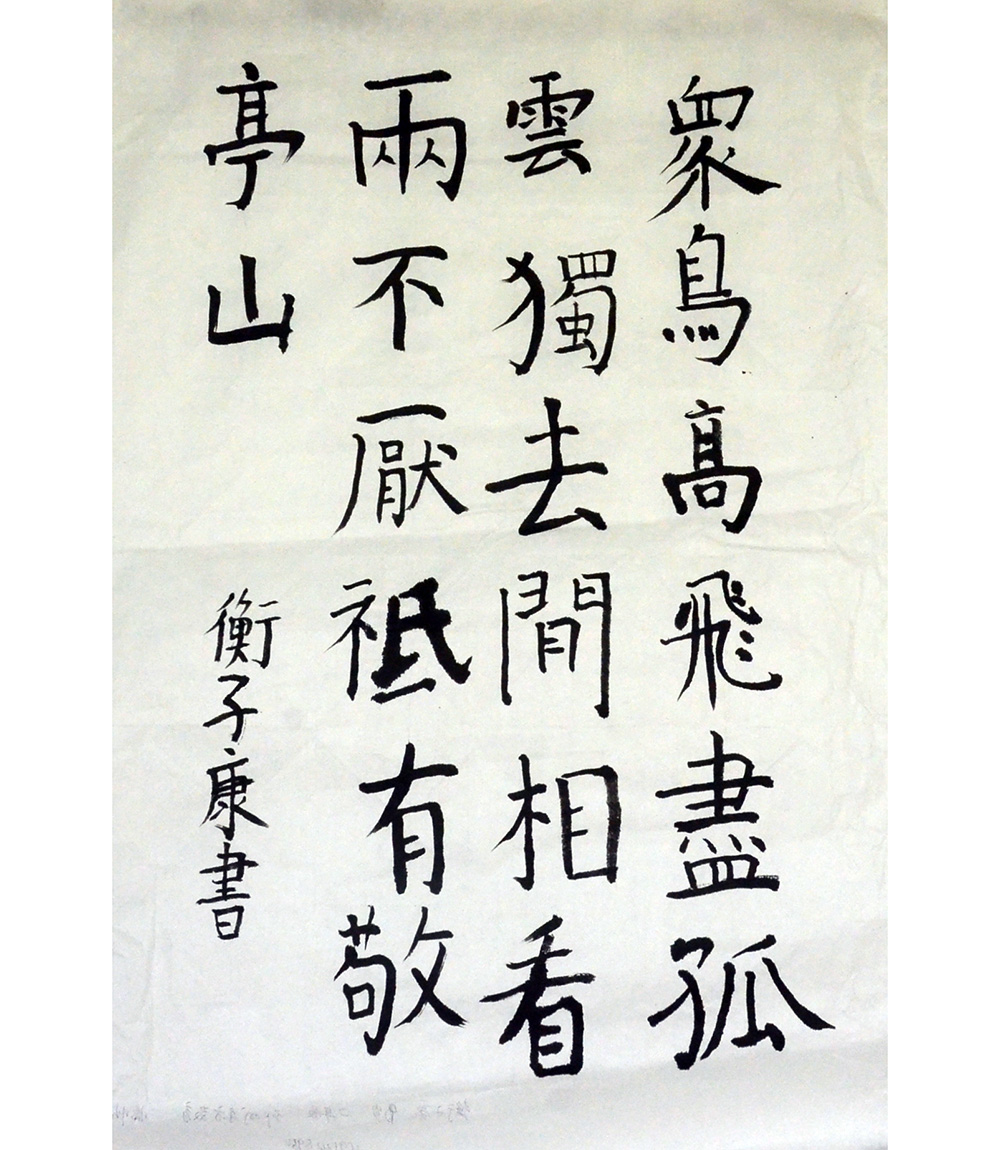 眾鳥高飛盡孤
雲獨去間相看
兩不厭祗有敬
亭山
衡子康書